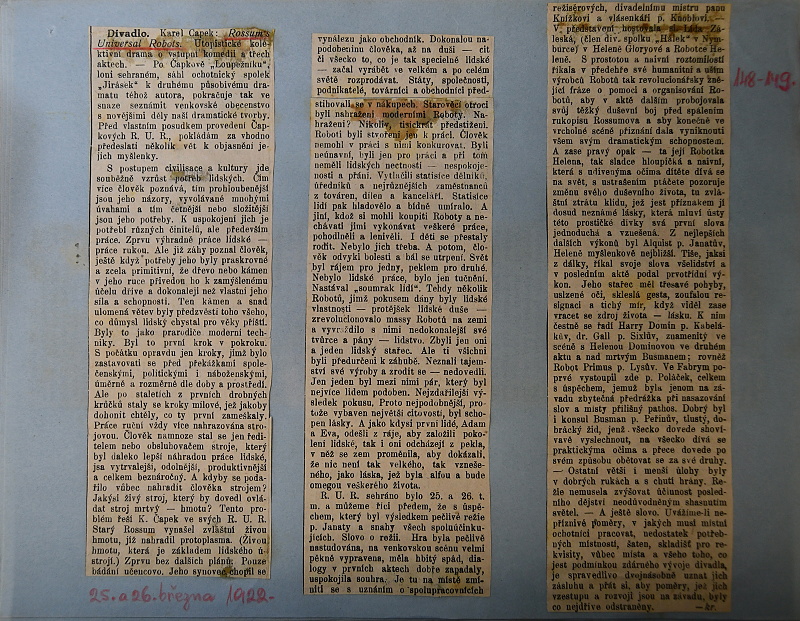 Divadlo. Karel Čapek: Rossum's
Universal Robots. Utopistické kolek-
tivní drama o vstupní komedii a třech
aktech. — Po Čapkově „Loupežníku",
loni sehraném, sáhl ochotnický spolek
„Jirásek" k druhému působivému dra-
matu téhož autora, pokračuje tak ve
snaze seznámit venkovské obecenstvo
s novějšími děly naší dramatické tvorby.
Před vlastním posudkem provedení Čap-
kových R. U. R. pokládám za vhodno
předeslati několik vět k objasnění je-
jich myšlenky.
S postupem civilisace a kultury jde
souběžně vzrůst potřeb lidských. Čím
více člověk poznává, tím prohloubenější
jsou jeho názory, vyvolávané mnohými
úvahami a tím četnější nebo složitější
jsou jeho potřeby. K uspokojení jich je
potřebí různých činitelů, ale především
práce. Zprvu výhradně práce lidské —
práce rukou. Ale již záhy poznal člověk,
ještě když potřeby jeho byly praskrovné
a zcela primitivní, že dřevo nebo kámen
v jeho ruce přiveden ho k zamýšlenému
účelu dříve a dokonaleji než vlastní jeho
síla a schopnosti. Ten kámen a snad
ulomená větev byly předzvěstí toho všeho,
co důmysl lidský chystal pro věky příští.
Byly to jako prarodiče moderní tech-
niky. Byl to první krok v pokroku.
S počátku opravdu jen kroky, jimž bylo
zastavovati se před překážkami spole-
čenskými, politickými i náboženskými,
úměrně a rozměrně dle doby a prostředí.
Ale po staletích z prvních drobných
krůčků staly se kroky mílové, jež jakoby
dohonit chtěly, co ty první zameškaly.
Práce ruční vždy více nahrazována stro-
jovou. Člověk namnoze stal se jen ředi-
telem nebo obsluhovačem stroje, který
byl daleko lepší náhradou práce lidské,
jsa vytrvalejší, odolnější, produktivnější
a celkem beznáročný. A kdyby se poda-
řilo vůbec nahradit člověka strojem?
Jakýsi živý stroj, který by dovedl ovlá-
dat stroj mrtvý — hmotu? Tento pro-
blém řeší K. Čapek ve svých R. U. R.
Starý Rossum vynašel zvláštní živou
hmotu, již nahradil protoplasma. (Živou
hmotu, která je základem lidského ú-
strojí.) Zprvu bez dalších plánů. Pouze
bádání učencovo. Jeho synovec chopil se
25. a 26. března 1922.
vynálezu jako obchodník. Dokonalou na-
podobeninu člověka, až na duši — cit
či všecko to, co je tak specielně lidské
— začal vyrábět ve velkém a po celém
světe rozprodávat. Státy, společnosti,
podnikatelé, továrníci a obchodníci před-
stihovali se v nákupech. Starověcí otroci
byli nahražení moderními Roboty. Na-
hražení? Nikoliv, tisickrát předstiženi.
Roboti byli stvořeni jen k práci. Člověk
nemohl v práci s nimi konkurovat. Byli
neúnavní, byli jen pro práci a při tom
neměli lidských nectností — nespokoje-
nosti a přání. Vytlačili statisíce dělníků,
úředníků a nejrůznějších zaměstnanců
z továren, dílen a kanceláří. Statisíce
lidí pak hladovělo a bídně umíralo. A
jiní, kdož si mohli koupiti Roboty a ne-
chávati jimi vykonávat veškeré práce,
pohodlněli a lenivěli. I děti se přestaly
rodit. Nebylo jich třeba. A potom, člo-
věk odvykl bolesti a bál se utrpení. Svět
byl rájem pro jedny, peklem pro druhé.
Nebylo lidské práce, bylo jen tučnění.
Nastával „soumrak lidí". Tehdy několik
Robotů, jimž pokusem dány byly lidské
vlastnosti — protějšek lidské duše —
zrevolucionovalo massy Robotů na zemi
a vyvraždilo s nimi nedokonalejší své
tvůrce a pány — lidstvo. Zbyli jen oni
a jeden lidský stařec. Ale ti všichni
byli předurčeni k záhubě. Neznali tajem-
ství své výroby a zrodit se — nedovedli.
Jen jeden byl mezi nimi pár, který byl
nejvíce lidem podoben. Nejzdařilejší vý-
sledek pokusu. Proto nejpodobnější, pro-
tože vybaven největší citovostí, byl scho-
pen lásky. A jako kdysi první lidé, Adam
a Eva, odešli z ráje, aby založili poko-
lení lidské, tak i oni odcházejí z pekla,
v něž se zem proměnila, aby dokázali,
že nic není tak velkého, tak vznešen-
ného, jako láska, jež byla alfou a bude
omegou veškerého života.
R. U. R. sehráno bylo 25. a 26. t.
m. a můžeme říci předem, že s úspě-
chem, který byl výsledkem pečlivé režie
p. Janaty a snahy všech spoluúčinku-
jících. Slovo o režii. Hra byla pečlivě
nastudována, na venkovskou scénu velmi
pěkně vypravena, měla hbitý spád, dia-
logy v prvních aktech dobře zapadaly,
uspokojila souhra. Je tu na místě zmí-
niti se s uznáním o spolupracovnících
režisérových, divadelnímu mistru panu
Knížkovi a vlásenkáři p. Knoblovi. —
V představení hostovala sl. Láda Zá-
leská, (člen div. spolku „Hálek" v Nym-
burce) v Heleně Gloryové a Robotce He-
leně. S prostotou a naivní roztomilostí
říkala v předehře své humanitní a uším
výrobců Robotů tak revolucionářsky zně-
jící fráze o pomoci a organisování Ro-
botů, aby v aktě dalším probojovala
svůj těžký duševní boj před spálením
rukopisu Rossumova a aby konečně ve
vrcholné scéně přiznání dala vyniknouti
všem svým dramatickým schopnostem.
A zase pravý opak — ta její Robotka
Helena, tak sladce hloupičká a naivní,
která s udivenýma očima dítěte dívá se
na svět, s ustrašením ptáčete pozoruje
změnu svého duševního života, tu zvláš-
tní ztrátu klidu, jež jest příznakem jí
dosud neznámé lásky, která mluví ústy
této prostičké dívky svá první slova
jednoduchá a vznešená. Z nejlepších
dalších výkonů byl Alquist p. Janatův,
Heleně myšlenkově nejbližší. Tiše, jaksi
z dálky, říkal svoje slova všelidství a
v posledním aktě podal prvotřídní vý-
kon. Jeho stařec měl třesavé pohyby,
uslzené oči, skleslá gesta, zoufalou re-
signaci s tichý mír, když viděl zase
vracet se zdroj života — lásku. K nim
čestně se řadí Harry Domin p. Kabelá-
kův, dr. Gall p. Sixlův, znamenitý ve
scéně s Helenou Dominovou ve druhém
aktu a nad mrtvým Busmanem; rovněž
Robot Primus p. Lysův. Ve Fabrym po-
prvé vystoupil zde p. Poláček, celkem
s úspěchem, jemuž byla jenom na zá-
vadu zbytečná předrážka při nasazování
slov a místy přílišný pathos. Dobrý byl
i konsul Busman p. Peřinův, tlustý, do-
brácký žid, jenž všecko dovede shoví-
vavě vyslechnout, na všecko dívá se
praktickýma očima a přece dovede po
svém způsobu obětovat se za své druhy.
— Ostatní větší i menší úlohy byly
v dobrých rukách a s chutí hrány. Re-
žie nemusela zvyšovat účinnost posled-
ního dějství neodůvodněným shasnutím
světel. — A ještě slovo. Uvážíme-li ne-
příznivé poměry, v jakých musí místní
ochotníci pracovat, nedostatek potřeb-
ných místností, šaten, skladišť pro re-
kvisity, vůbec místa a všeho toho, co
jest podmínkou zdárného vývoje divadla,
je spravedlivo dvojnásobně uznat jich
zásluhu a přát si, aby poměry, jež jich
vzestupu a rozvoji jsou na závadu, byly
co nejdříve odstraněny. — kr.
148-149.